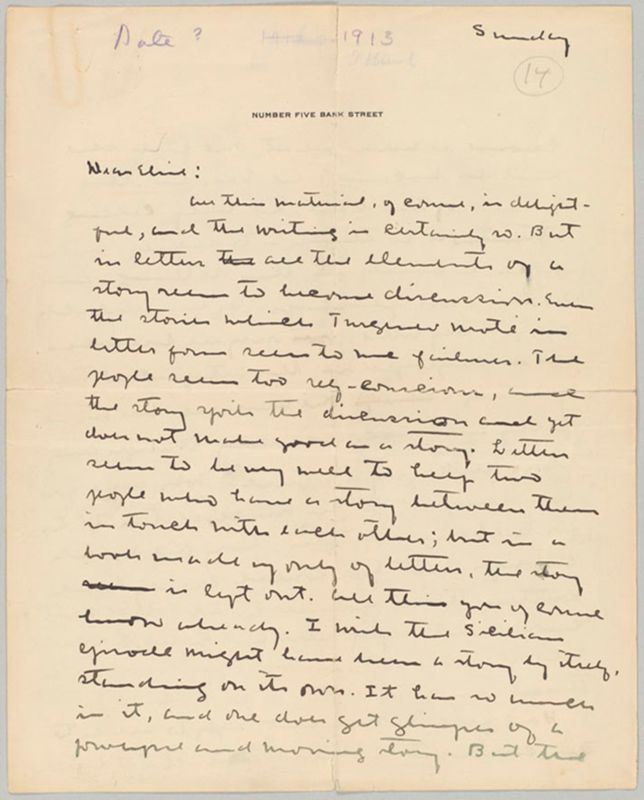 Date ? 1913
Sunday
14
NUMBER FIVE BANK STREET
Dear Elsie:
All this material, of course, is delight-
ful, and the writing is certainly so. But
in letters all the elements of a
story seem to become discussion. Even
the stories which Turgenev wrote in
letter form seem to me failures. The
people seem too self-conscious, and
the story spoils the discussion and yet
does not make good as a story. Letters
seem to be very well to keep two
people who have a story between them
in touch with each other; but in a
book made up only of letters, the story
is left out. All this you of course
know already. I wish the Sicilian
episode might have been a story by itself,
standing on its own. It has so much
in it, and one does get glimpses of a
powerful and moving story. But the